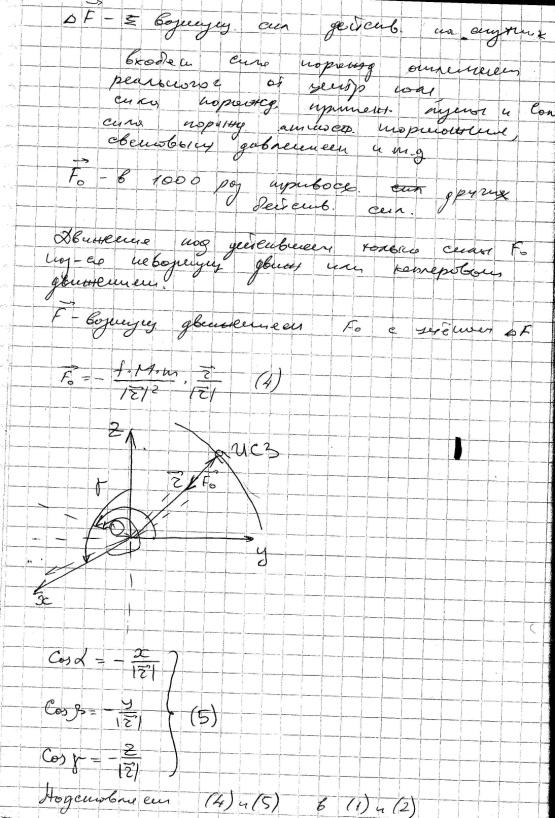 ΔF⃗ - Σ возмущ сил действ. на спутник
входят сила порожд отличием
реального от центр поля
сила порожд. притяж. Луны и Сол
сила порожд атмосф. торможения,
световым давлением и т.д
F⃗₀ - в 1000 раз превосх. сил других
действ. сил.
Движение под действием только силы F₀
наз-ся невозмущ движ или кеплеровым
движением.
F⃗ - возмущ движением F₀ с учётом ΔF
F⃗₀ = - f·M·m / |r⃗|² · r⃗ / |r⃗| (4)
z
ИСЗ
γ r⃗ F⃗₀
y
x
Cosα = - x / |r⃗|
Cosβ = - y / |r⃗| (5)
Cosγ = - z / |r⃗|
Подставляем (4) и (5) в (1) и (2)